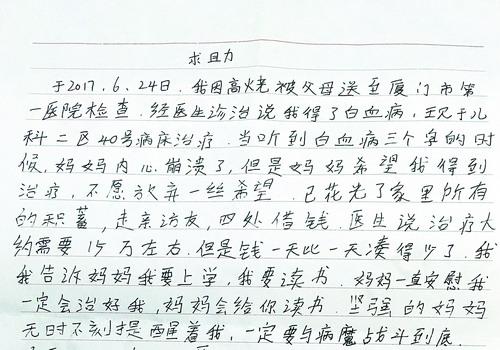 求且力
于2017.6.24日.我因高烧被父母送至厦门市第
一医院检查.经医生诊治说我得了白血病,现于儿
科二区40号病床治疗.当听到白血病三个字的时
候,妈妈内心崩溃了,但是妈妈希望我得到
治疗,不愿放弃一丝希望.已花光了家里所有
的积蓄,走亲访友,四处借钱.医生说治疗大
约需要15万左右.但是钱一天比一天凑得少了.我
我告诉妈妈我要上学,我要读书.妈妈一直安慰我
一定会治好我,妈妈会给你读书.坚强的妈妈
无时不刻提醒着我,一定要与病魔战斗到底.